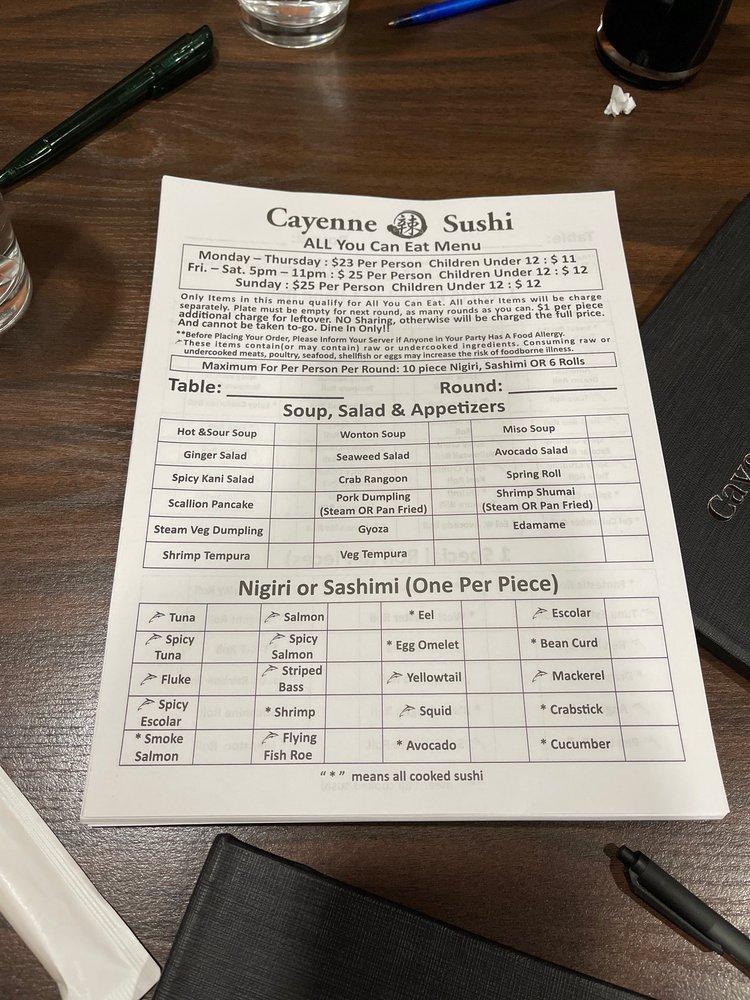 Cayenne 辣 Sushi
ALL You Can Eat Menu
Monday – Thursday : $23 Per Person Children Under 12 : $ 11
Fri. – Sat. 5pm – 11pm : $ 25 Per Person Children Under 12 : $ 12
Sunday : $25 Per Person Children Under 12 : $ 12
Only Items in this menu qualify for All You Can Eat. All other Items will be charge
separately. Plate must be empty for next round, as many rounds as you can. $1 per piece
additional charge for leftover. NO Sharing, otherwise will be charged the full price.
And cannot be taken to-go. Dine In Only!!
**Before Placing Your Order, Please Inform Your Server if Anyone in Your Party Has A Food Allergy.
These items contain(or may contain) raw or undercooked ingredients. Consuming raw or
undercooked meats, poultry, seafood, shellfish or eggs may increase the risk of foodborne illness.
Maximum For Per Person Per Round: 10 piece Nigiri, Sashimi OR 6 Rolls
Table: ____________ Round: ____________
Soup, Salad & Appetizers
Hot &Sour Soup Wonton Soup Miso Soup
Ginger Salad Seaweed Salad Avocado Salad
Spicy Kani Salad Crab Rangoon Spring Roll
Scallion Pancake Pork Dumpling (Steam OR Pan Fried) Shrimp Shumai (Steam OR Pan Fried)
Steam Veg Dumpling Gyoza Edamame
Shrimp Tempura Veg Tempura
Nigiri or Sashimi (One Per Piece)
Tuna Salmon * Eel Escolar
Spicy Tuna Spicy Salmon * Egg Omelet * Bean Curd
Fluke Striped Bass Yellowtail Mackerel
Spicy Escolar * Shrimp Squid * Crabstick
* Smoke Salmon Flying Fish Roe * Avocado * Cucumber
" * " means all cooked sushi
Caye